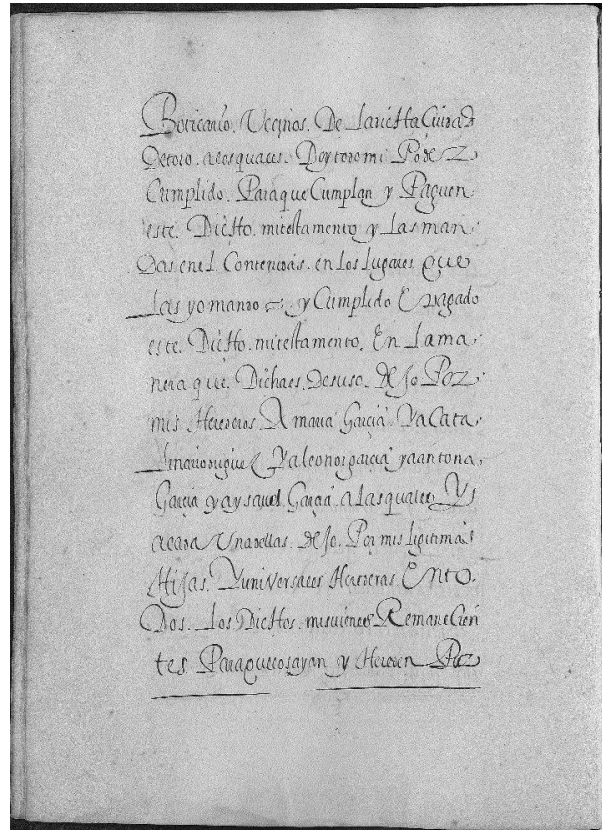 Boticario. Vecinos. De La dicHa Ciudad
De toro. a los quales. Doy todo mi Poder
Cumplido. Para que Cumplan y Paguen
este. DicHo. mi testamento y Las man
Das en el. Contenidas. en Los Lugares que
Las yo mando y Cumplido E Pagado
este. DicHo. mi testamento. En La ma
nera que. Dicha es. Desuso. Dejo Por
mis Herederos. A maria Garcia Ya Cata
lina Ya leonor garcia ya antona
Garcia y a ysavel Garcia a Las quales Y
a cada Una dellas. Dejo. Por mis ligitimas
Hijas. Y universales Herederas En to
Dos. Los DicHos. mis vienes Remanecien
tes. Para que Los ayan y Hereden Por